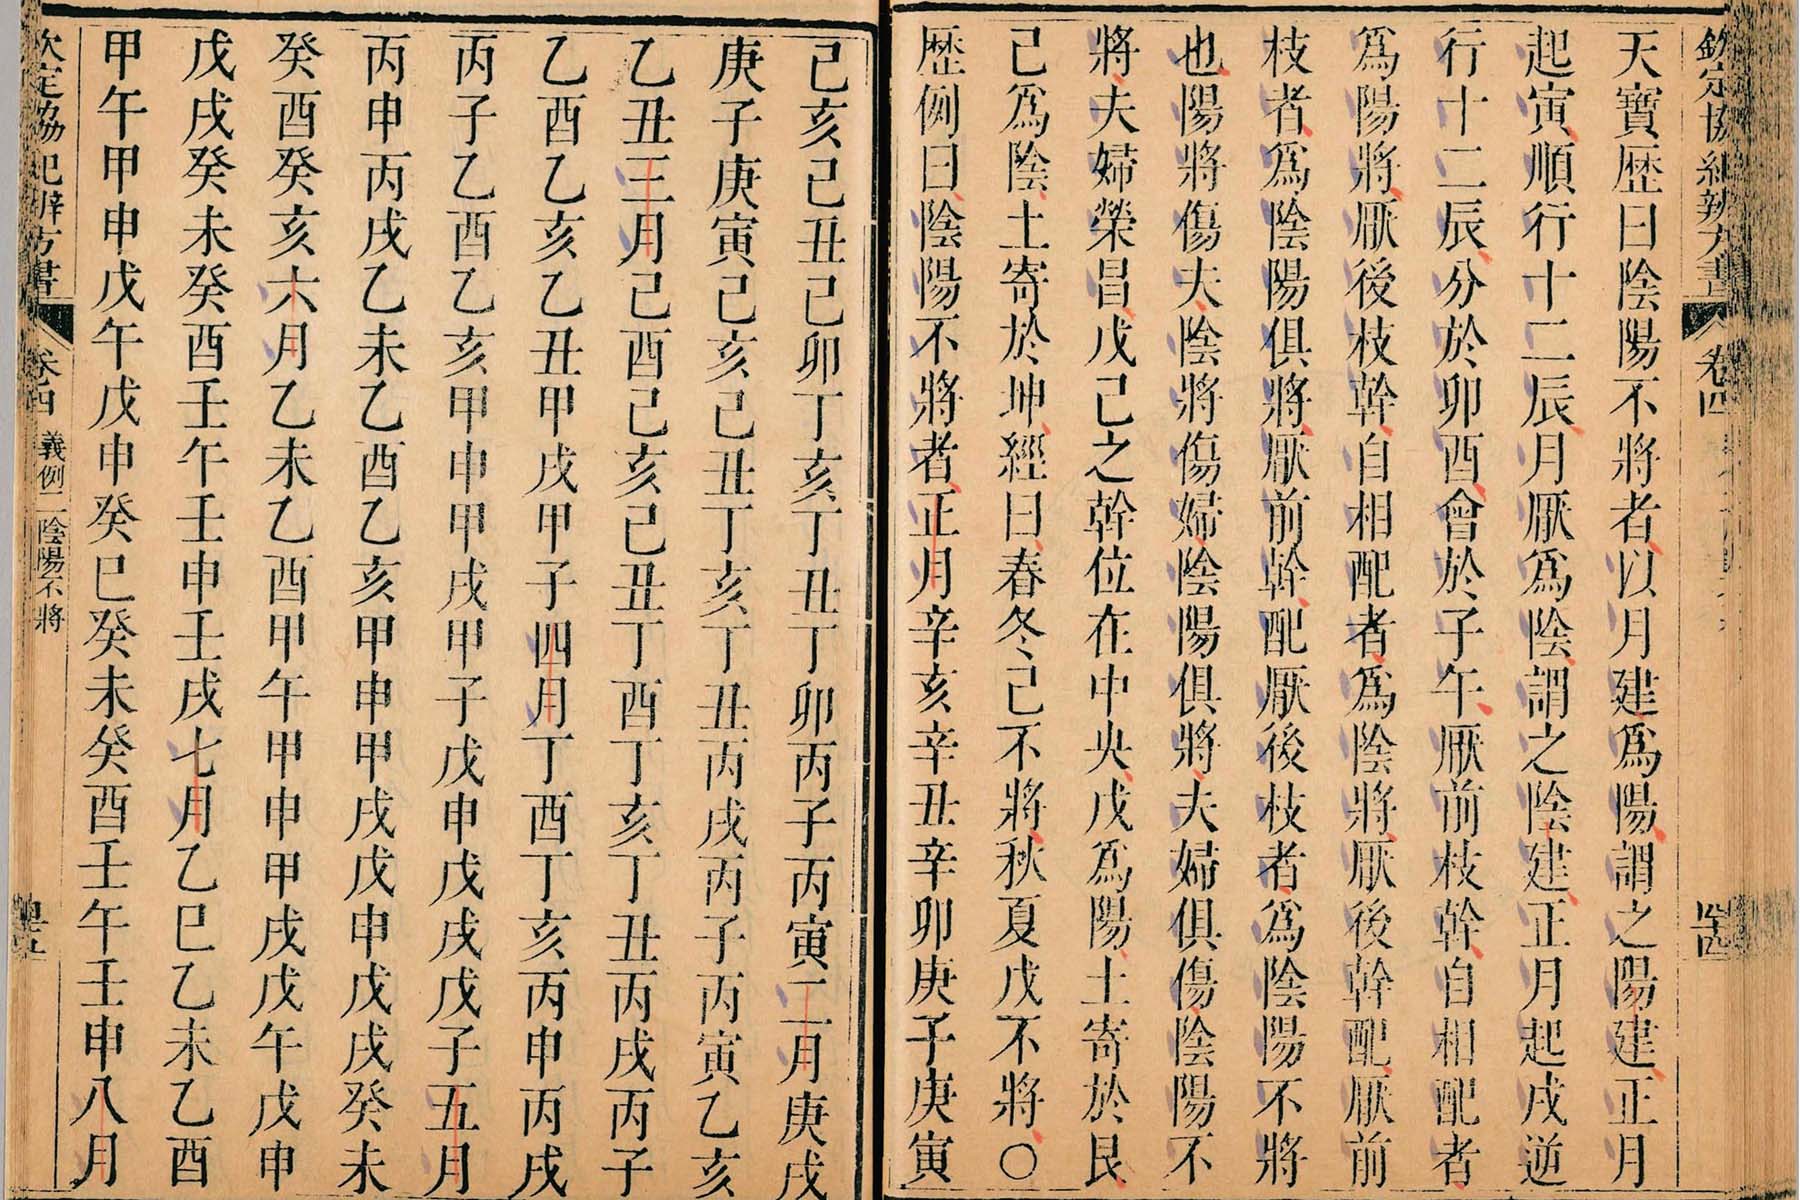 欽定協紀辨方書
卷四
天寶歷曰陰陽不將者以月建爲陽謂之陽建正月
起寅順行十二辰月厭爲陰謂之陰建正月起戌逆
行十二辰分於卯酉會於子午厭前枝幹自相配者
爲陽將厭後枝幹自相配者爲陰將厭後幹配厭前
枝者爲陰陽俱將厭前幹配厭後枝者爲陰陽不將
也陽將傷夫陰將傷婦陰陽俱將夫婦俱傷陰陽不
將夫婦榮昌戊己之幹位在中央戊爲陽土寄於艮
己爲陰土寄於坤經曰春冬己不將秋夏戊不將○
歷例曰陰陽不將者正月辛亥辛丑辛卯庚子庚寅
己亥己丑己卯丁亥丁丑丁卯丙子丙寅二月庚戌
庚子庚寅己亥己丑丁亥丁丑丙戌丙子丙寅乙亥
乙丑三月己酉己亥己丑丁酉丁亥丁丑丙戌丙子
乙酉乙亥乙丑甲戌甲子四月丁酉丁亥丙申丙戌
丙子乙酉乙亥甲申甲戌甲子戊申戊戌戊子五月
丙申丙戌乙未乙酉乙亥甲申甲戌戊申戊戌癸未
癸酉癸亥六月乙未乙酉甲午甲申甲戌戊午戊申
戊戌癸未癸酉壬午壬申壬戌七月乙巳乙未乙酉
甲午甲申戊午戊申癸巳癸未癸酉壬午壬申八月
欽定協紀辨方書
卷四
義例二陰陽不將